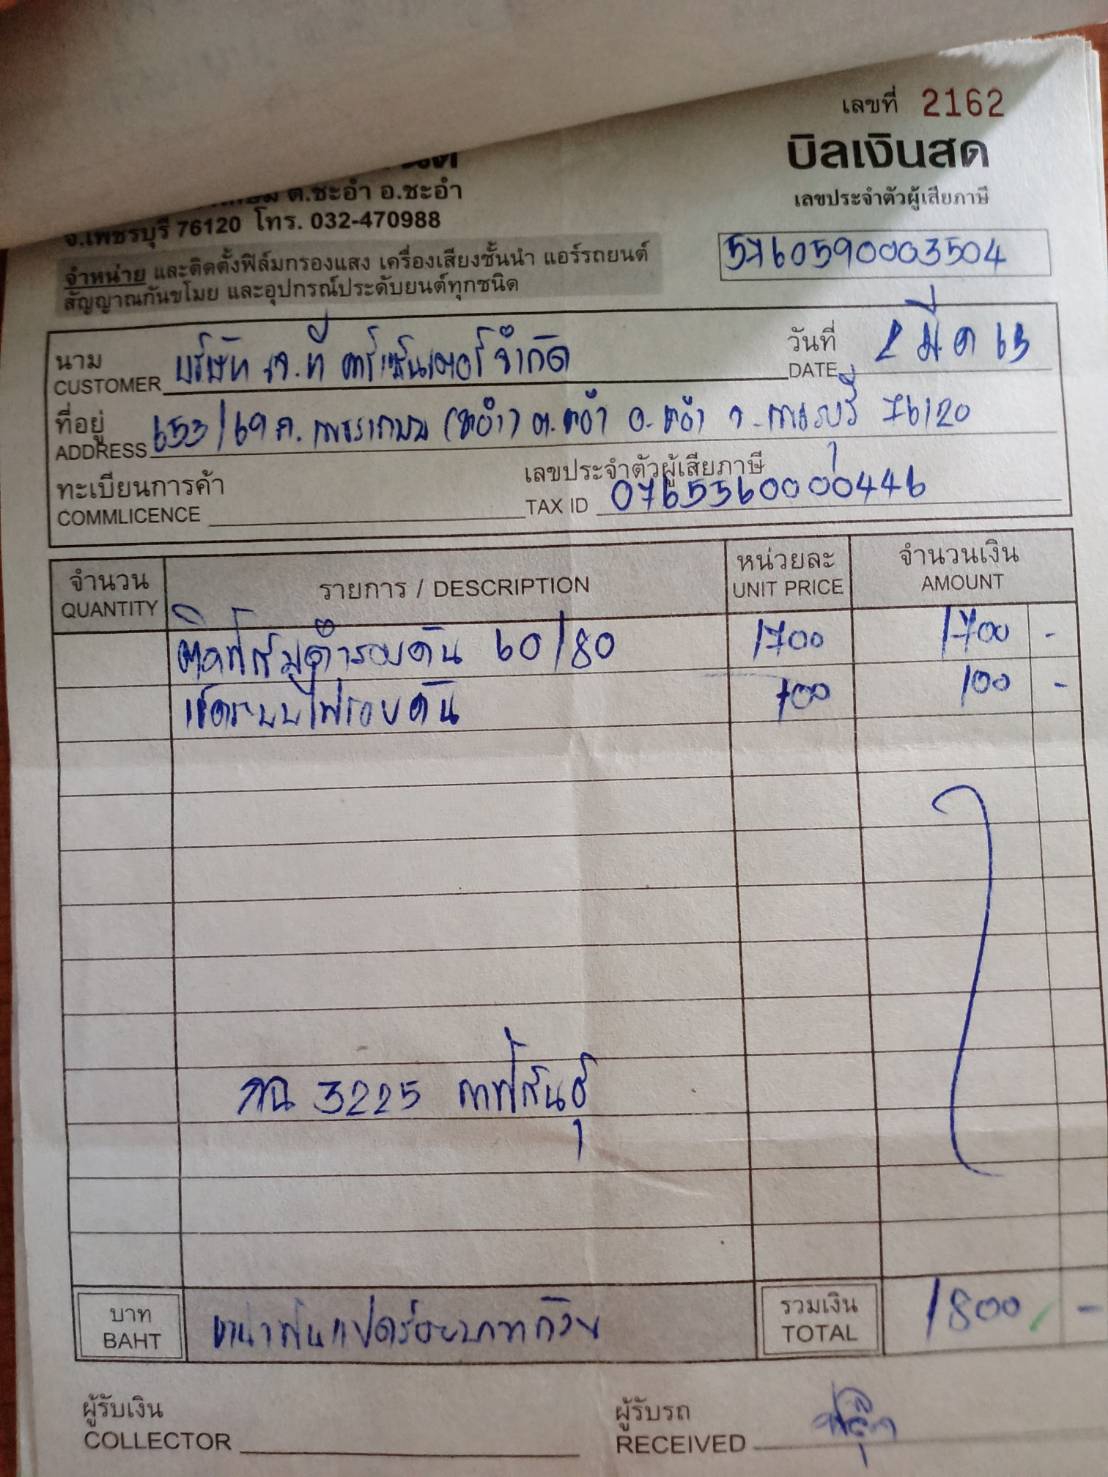 เลขที่ 2162
บิลเงินสด
เลขประจำตัวผู้เสียภาษี
5760590003504
ต.ชะอำ อ.ชะอำ
จ.เพชรบุรี 76120 โทร. 032-470988
จำหน่าย และติดตั้งฟิล์มกรองแสง เครื่องเสียงชั้นนำ แอร์รถยนต์
สัญญาณกันขโมย และอุปกรณ์ประดับยนต์ทุกชนิด
นาม บริษัท เจ.ที คาร์เซ็นเตอร์ จำกัด วันที่ 2 มีค 63
CUSTOMER DATE
ที่อยู่ 653/69 ถ.เพชรเกษม (ชะอำ) ต.ชะอำ อ.ชะอำ จ.เพชรบุรี 76120
ADDRESS
ทะเบียนการค้า เลขประจำตัวผู้เสียภาษี
COMMLICENCE TAX ID 0765560000446
จำนวน รายการ / DESCRIPTION หน่วยละ จำนวนเงิน
QUANTITY UNIT PRICE AMOUNT
ติดฟิล์มดำรอบคัน 60/80 1700 1700 -
เช็คระบบไฟรอบคัน 100 100 -
3225 กาฬสินธุ์
บาท รวมเงิน
BAHT หนึ่งพันแปดร้อยบาทถ้วน TOTAL 1800 -
ผู้รับเงิน ผู้รับรถ
COLLECTOR RECEIVED